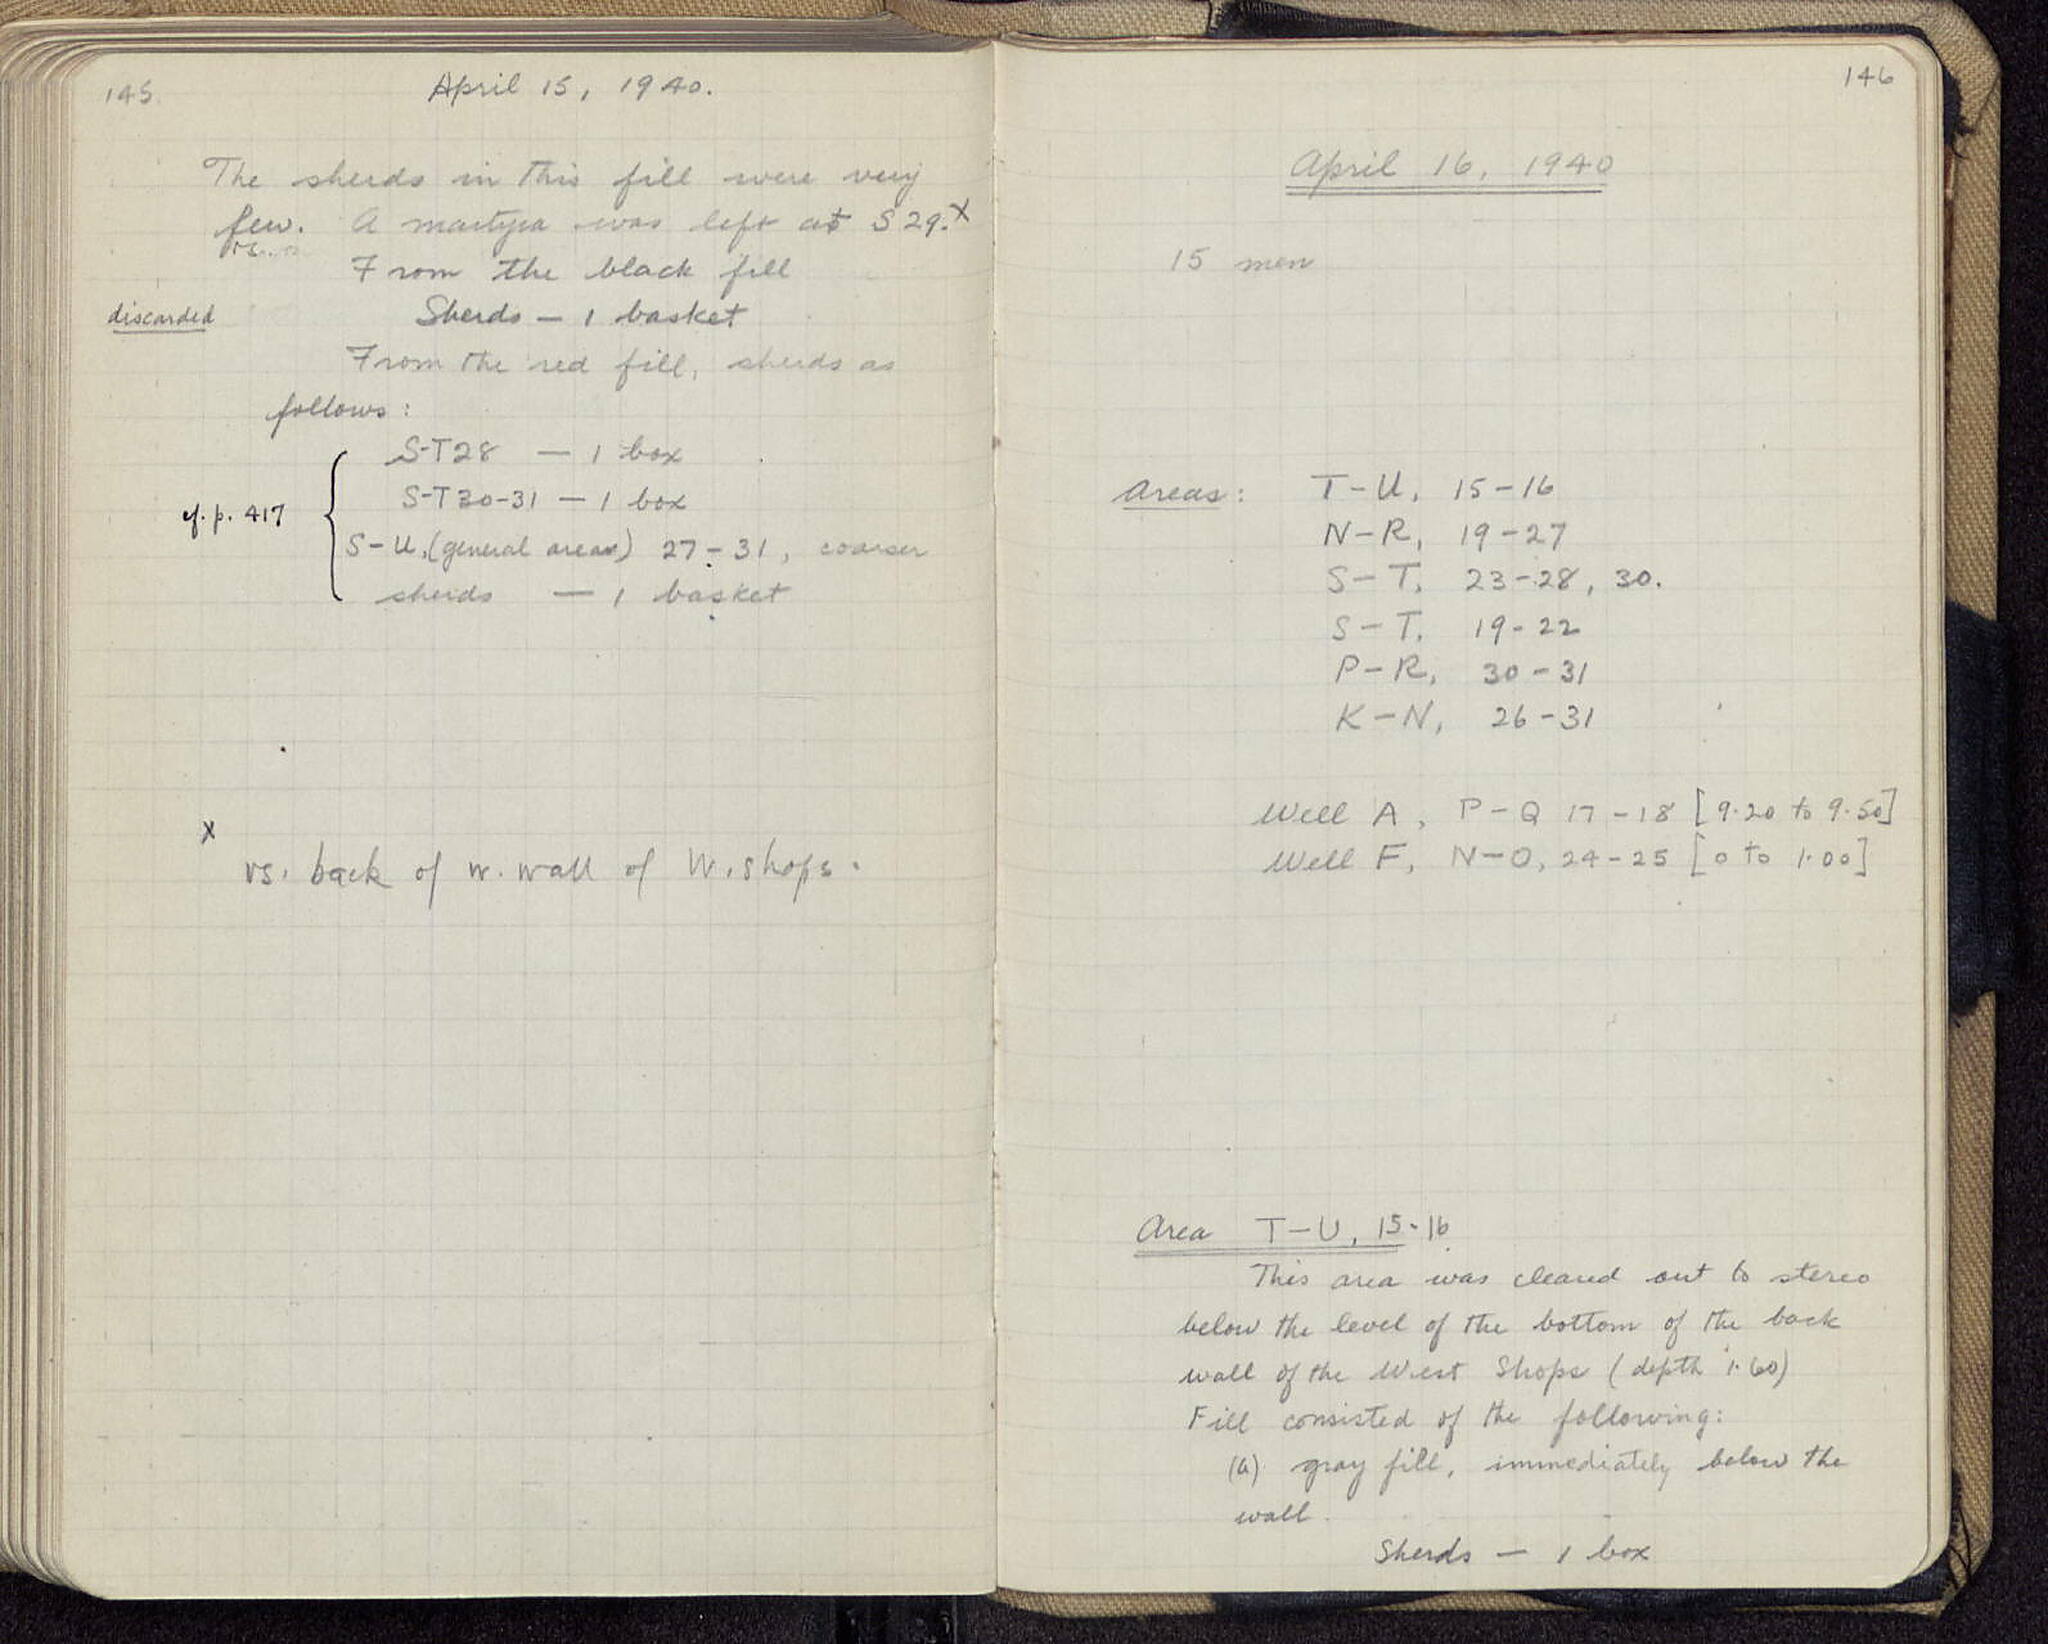 145
April 15, 1940.
The sherds in this fill were very
few. A martyra was left at S 29.x
From the black fill
discarded
Sherds — 1 basket
From the red fill, sherds as
follows:
S-T 28 — 1 box
S-T 30-31 — 1 box
cf. p. 417
S-U, (general area) 27-31, coarser
sherds — 1 basket
x
vs. back of w. wall of W. shops.
146
April 16, 1940
15 men
Areas: T-U, 15-16
N-R, 19-27
S-T, 23-28, 30.
S-T, 19-22
P-R, 30-31
K-N, 26-31
Well A, P-Q 17-18 [9.20 to 9.50]
Well F, N-O, 24-25 [0 to 1.00]
Area T-U, 15-16
This area was cleared out to stereo
below the level of the bottom of the back
wall of the West Shops (depth 1.60)
Fill consisted of the following:
(a) gray fill, immediately below the
wall.
Sherds — 1 box